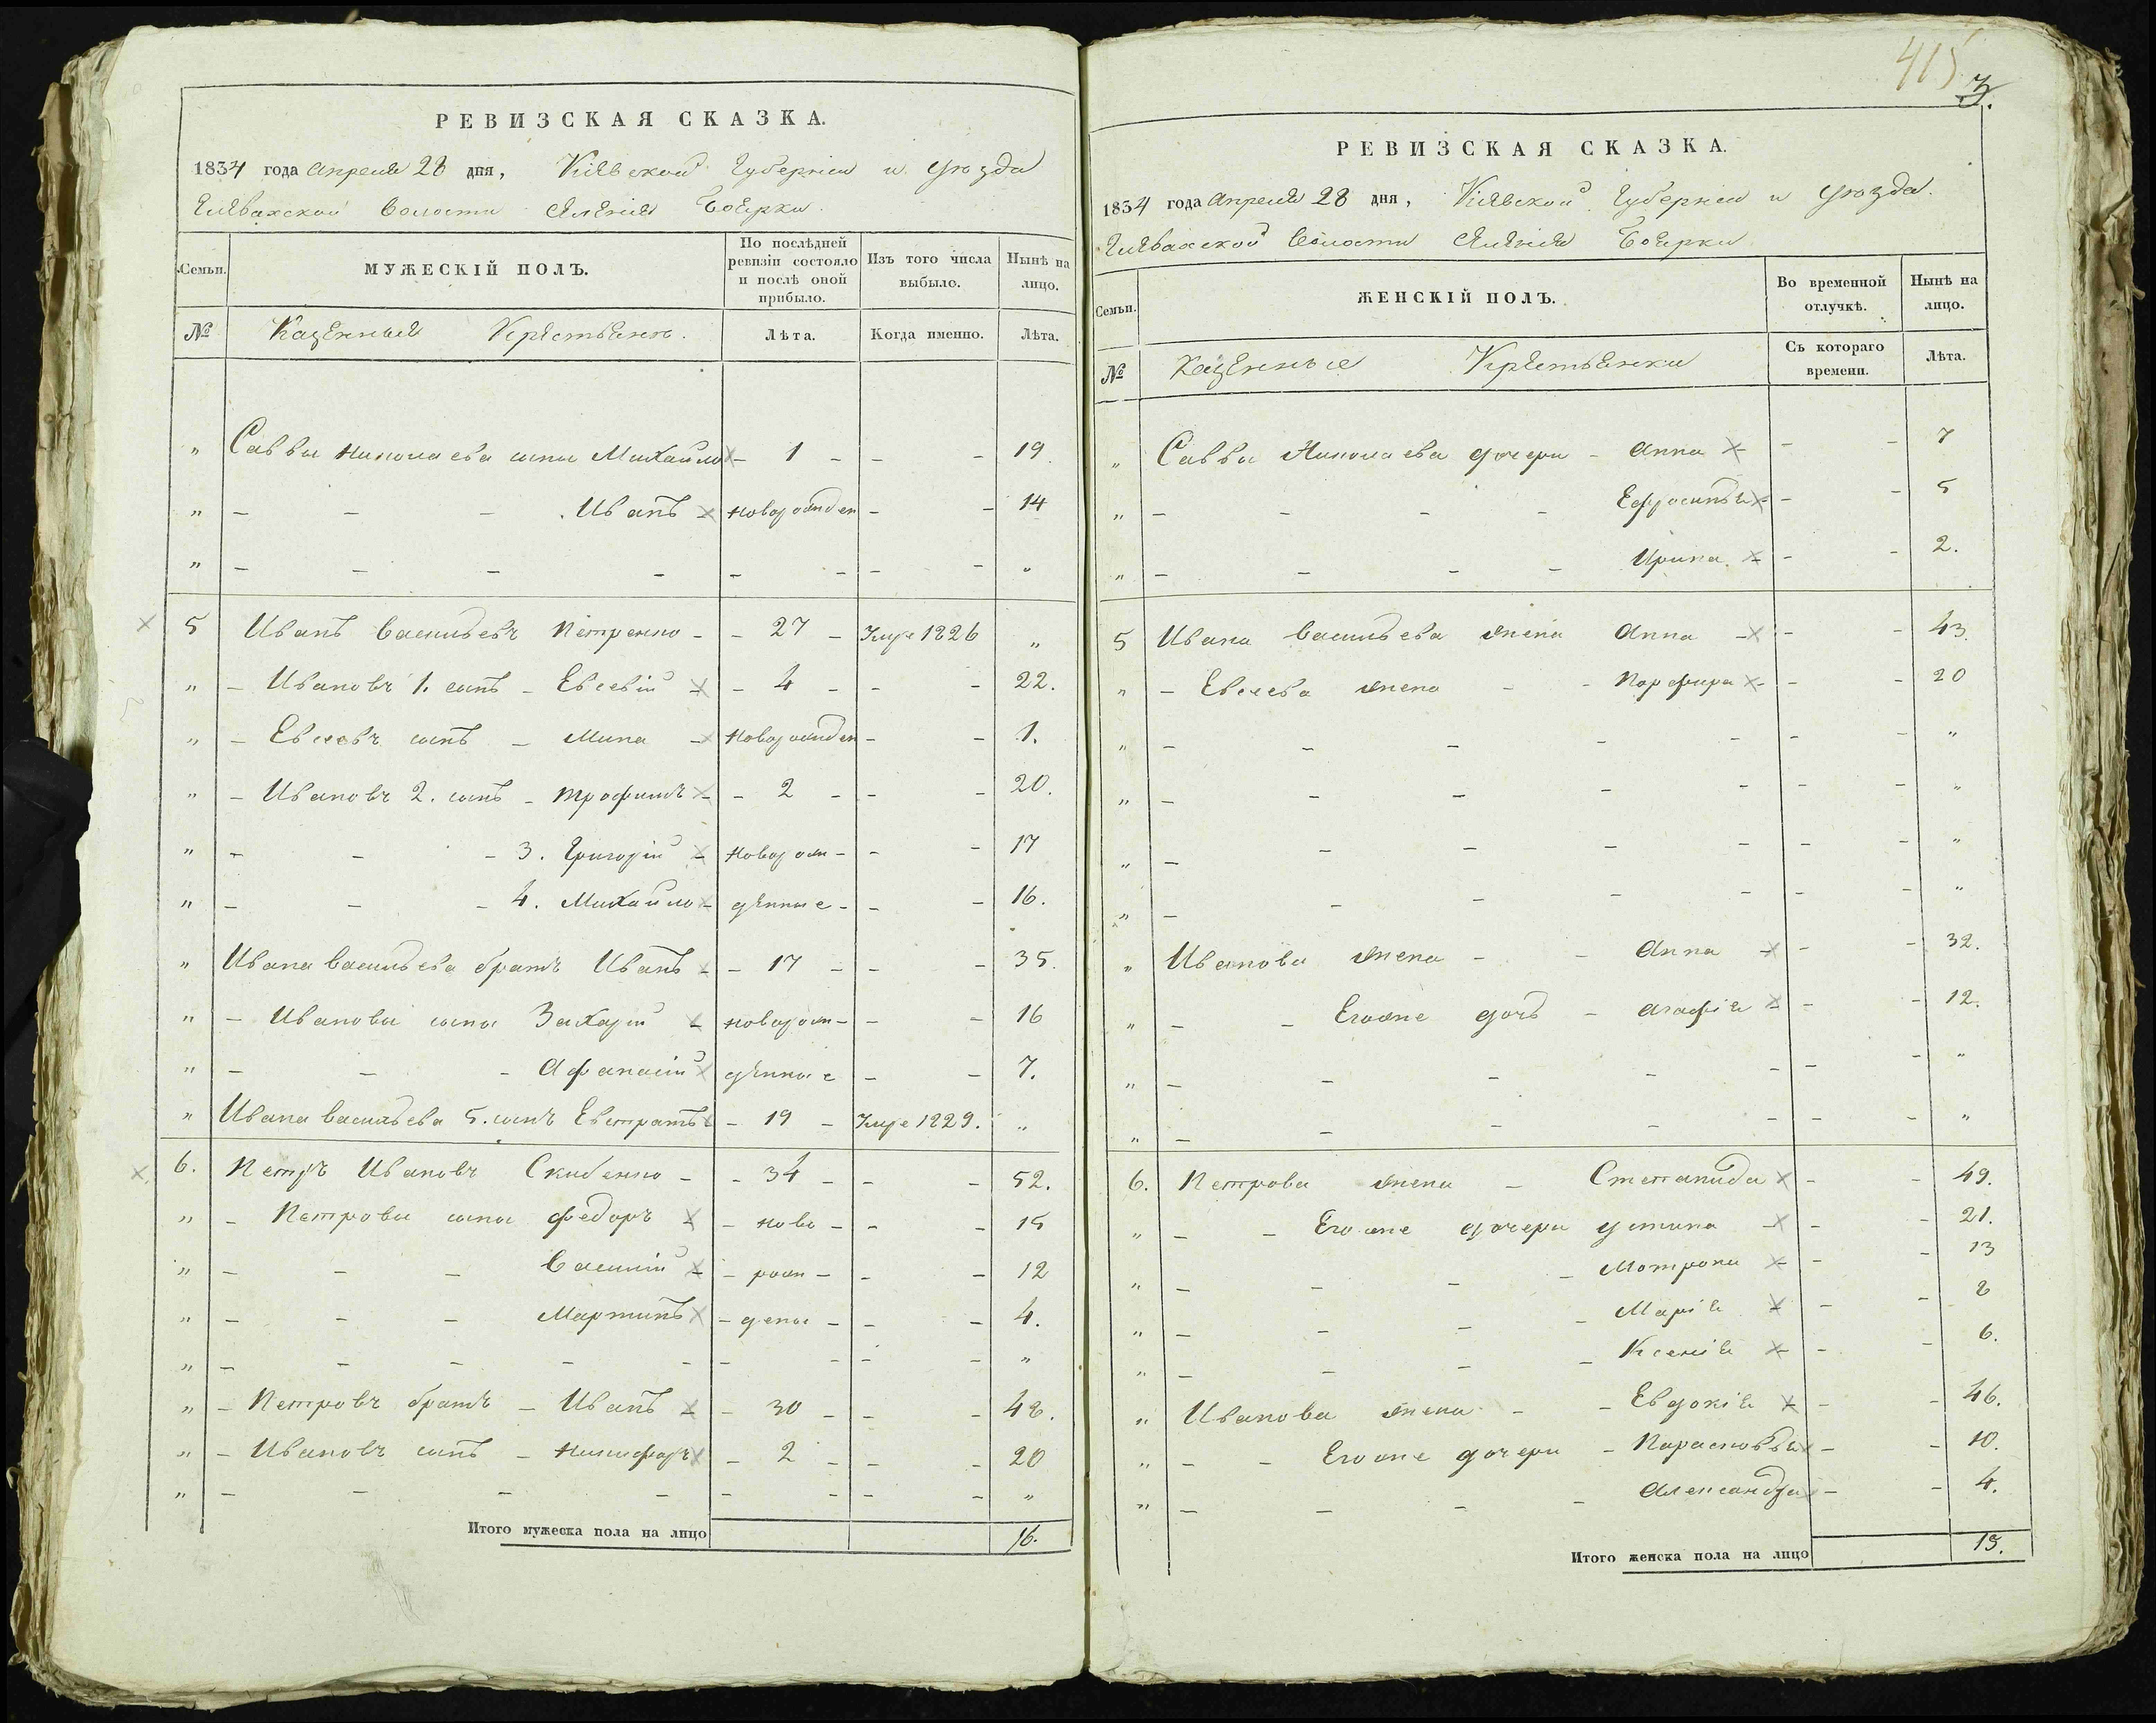 РЕВИЗСКАЯ СКАЗКА.
1834 года Апреля 28 дня, Кіевской Губерніи и уѣзда
Глевахской волости селенія Боярки.
Семьи. МУЖЕСКІЙ ПОЛЪ. По послѣдней ревизіи состояло и послѣ оной прибыло. Изъ того числа выбыло. Нынѣ на лицо.
№ Казенныя Крестьяне. Лѣта. Когда именно. Лѣта.
" Саввы Николаева сыны Михайло - 1 - - - 19
" - - - Иванъ - новорожден - - 14
" - - - - - - - - "
5 Иванъ Васильевъ Петренко - - 27 - Умре 1826 "
" - Ивановъ 1. сынъ - Евсевій - - 4 - - - 22.
" - Евсеевъ сынъ - Мина - новорожден - - 1.
" - Ивановъ 2. сынъ - Трофимъ - - 2 - - - 20.
" - - - 3. Григорій - новорож - - - 17
" - - - 4. Михайло - денные - - - 16.
" Ивана Васильева братъ Иванъ - - 17 - - - 35.
" - Ивановы сыны Захарій - новорож - - - 16
" - - - Афанасій денные - - 7.
" Ивана Васильева 5. сынъ Евстратъ - 19 - Умре 1829. "
6. Петръ Ивановъ Скибенко - - 34 - - - 52.
" - Петровы сыны Федоръ - - ново - - - 15
" - - - Василій - - рож - - - 12
" - - - Мартинъ - дены - - - 4.
" - - - - - - - - - "
" - Петровъ братъ - Иванъ - - 30 - - - 48.
" - Ивановъ сынъ - Никифоръ - 2 - - - 20
" - - - - - - - - "
Итого мужеска пола на лицо 16.
415
3.
РЕВИЗСКАЯ СКАЗКА.
1834 года Апреля 28 дня, Кіевской Губерніи и уѣзда.
Глевахской волости селенія Боярки
Семьи. ЖЕНСКІЙ ПОЛЪ. Во временной отлучкѣ. Нынѣ на лицо.
№ Казенные Крестьянки Съ котораго времени. Лѣта.
" Саввы Николаева дочери - Анна - - - 7
" - - - - Ефросинья - - - 5
" - - - - Ирина. - - - 2.
5 Ивана Васильева жена Анна - - - 43.
" - Евсеева жена - - Порфира - - - 20
" - - - - - - - "
" - - - - - - - "
" - - - - - - - "
" - - - - - - - "
" Иванова жена - - Анна - - - 32.
" - - Егоже дочь - Агафія - - - 12.
" - - - - - - - "
" - - - - - - - "
6. Петрова жена - Степанида - - 49.
" - - Егоже дочери Устина - - - 21.
" - - - - Мотрона - - - 13
" - - - - Марія - - - 8
" - - - - Ксенія - - 6.
" Иванова жена - - Евдокія - - - 46.
" - - Егоже дочери - Парасковья - - 10.
" - - - - Александра - - 4.
Итого женска пола на лицо 15.